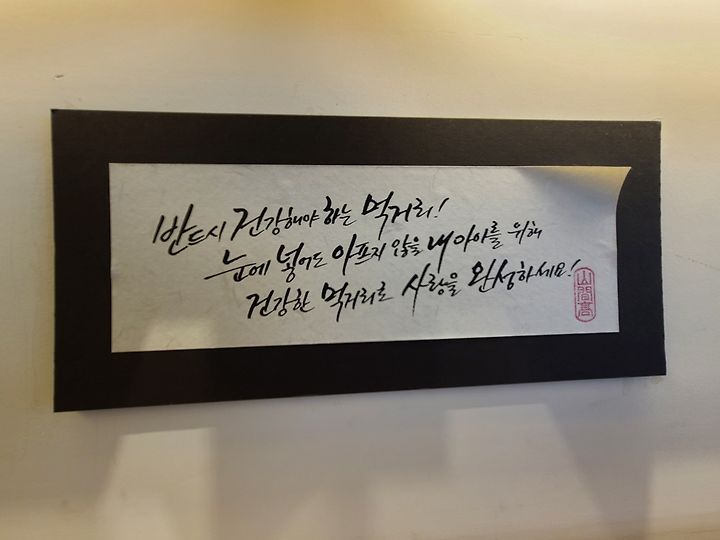 반드시 건강해야 하는 먹거리!
눈에 넣어도 아프지 않을 내 아이를 위해
건강한 먹거리로 사랑을 완성하세요!